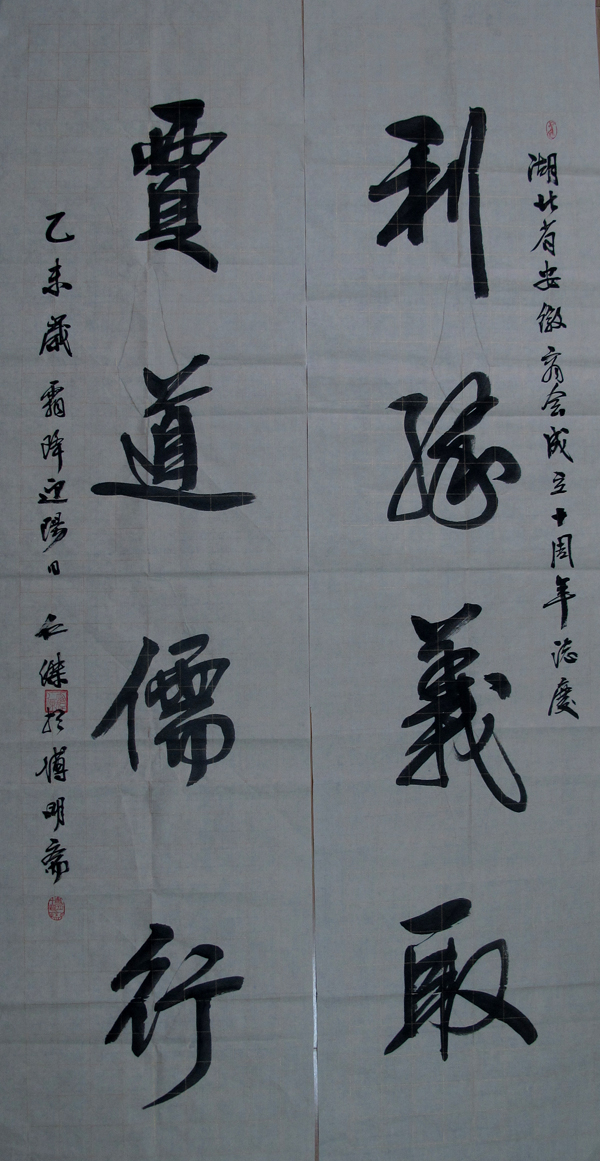 湖北省安徽商会成立十周年誌慶
利緣義取
賈道儒行
乙未歲霜降迎陽日仁傑於博明齋